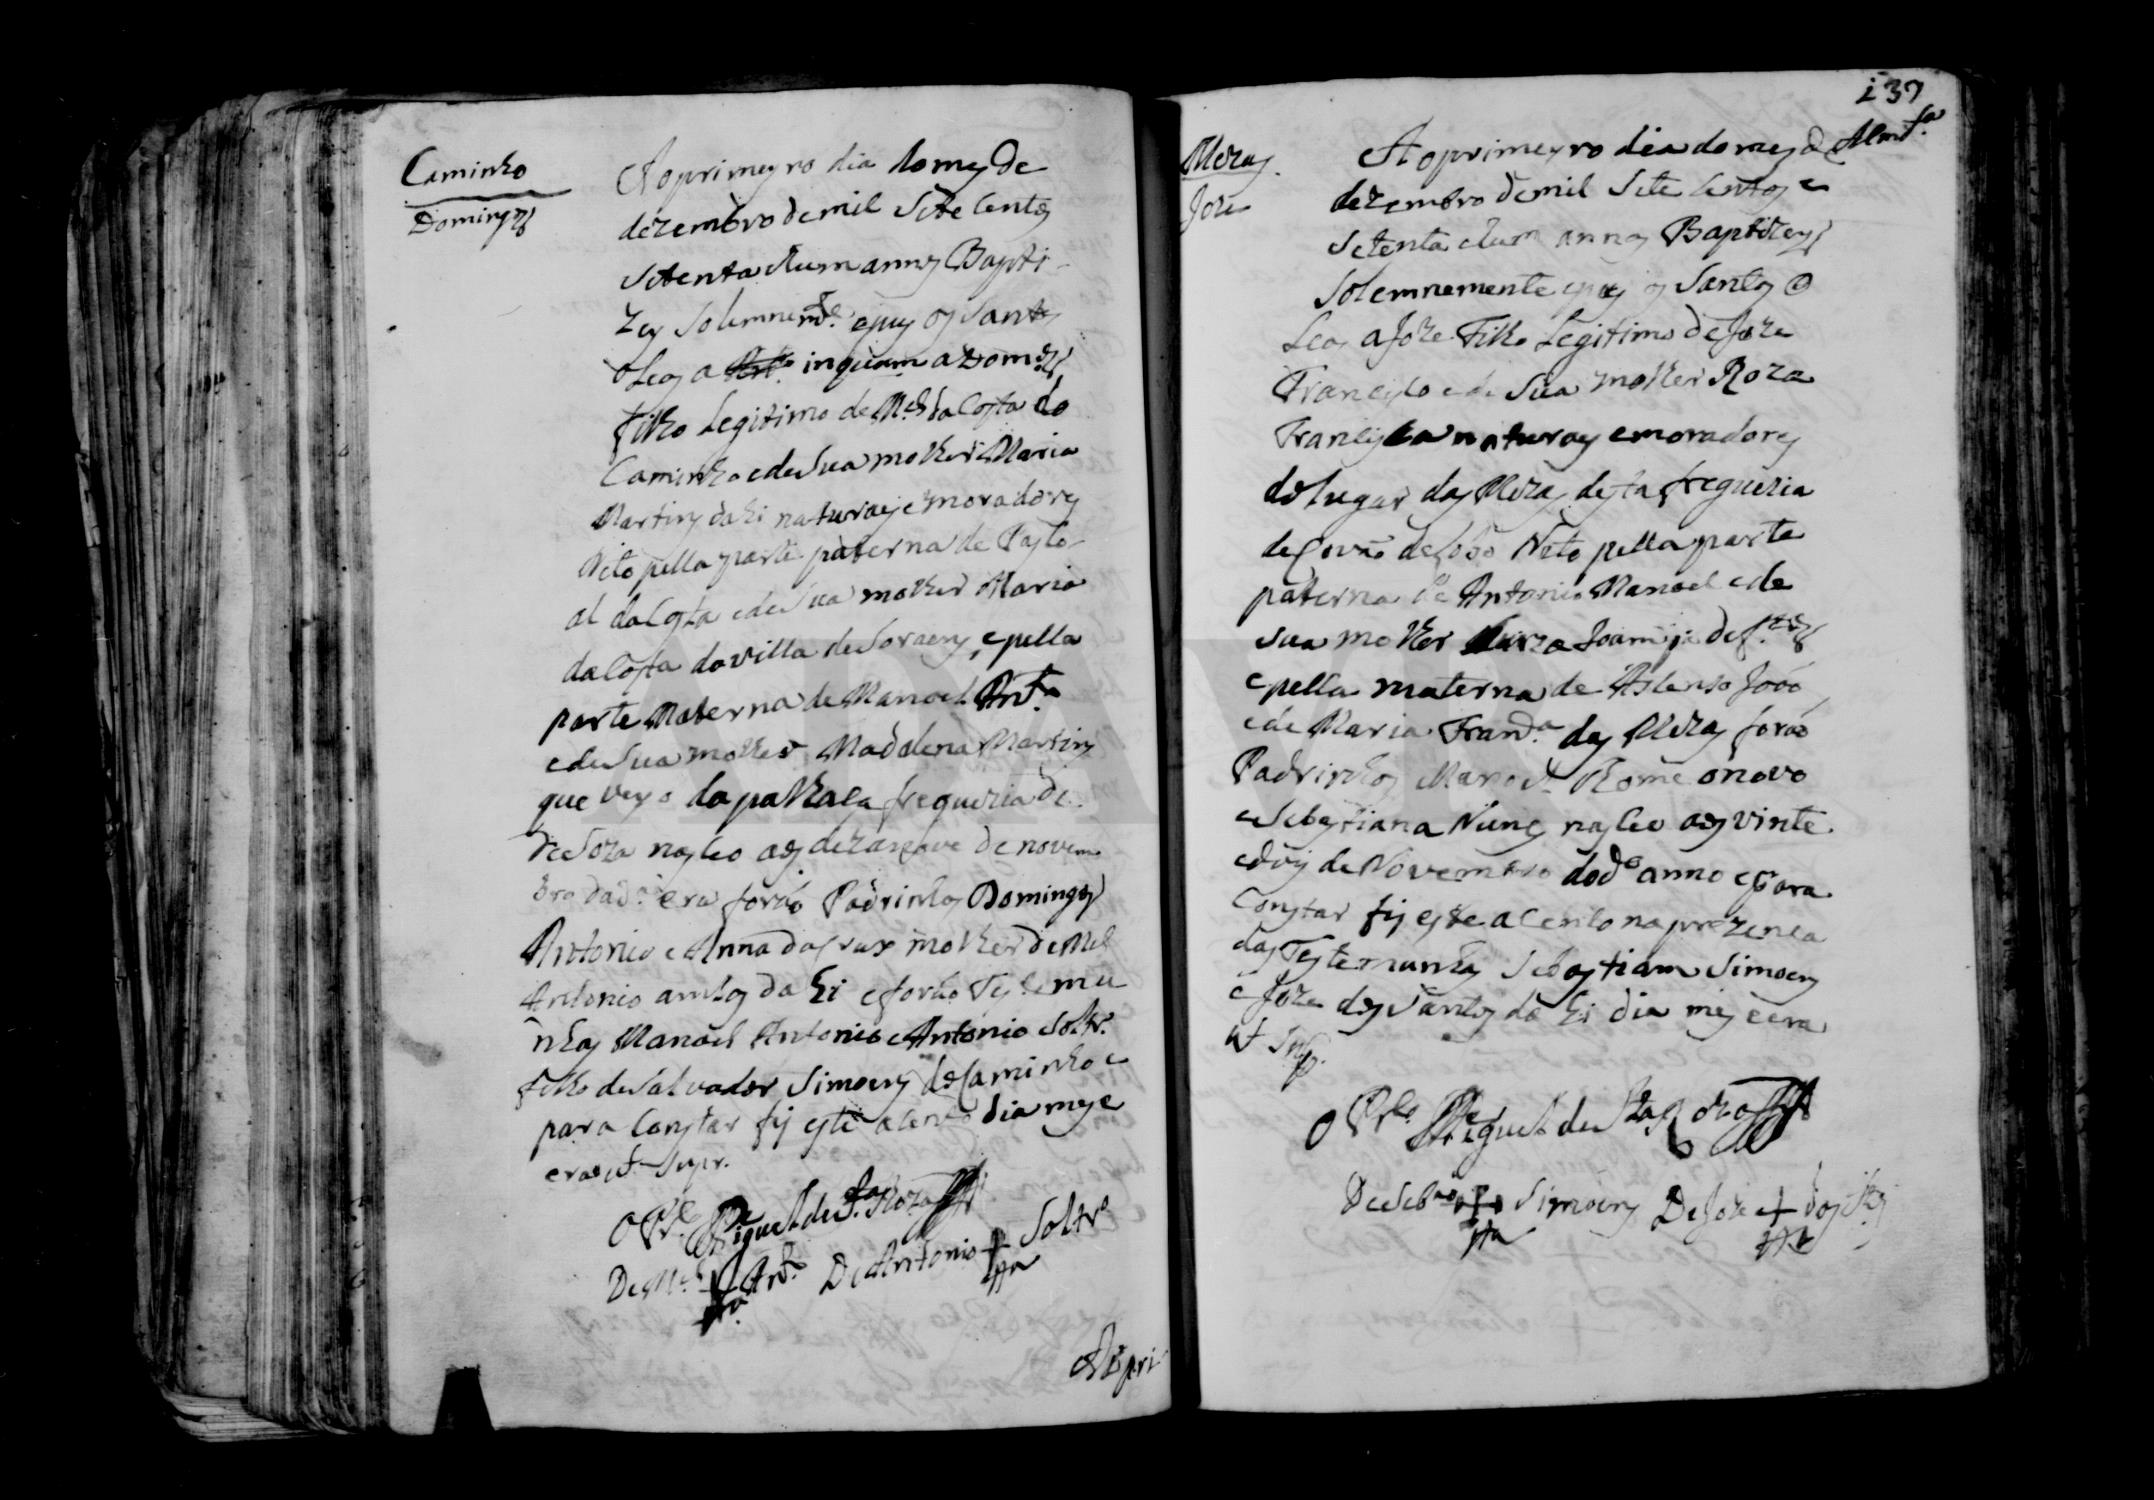 Caminho
Domingos
Ao primeyro dia do mes de
dezembro de mil Sete Centos
Setenta e hum annos Bapti-
zey Solemnem.te e puz os Santos
oleos a inquam a Dom.os
filho Legitimo de M.el da Costa do
Caminho e de Sua molher Maria
Martins dahi naturaes e moradores
Neto pella parte paterna de Pasco-
al da Costa e de Sua molher Maria
da Costa da villa de Soraens, e pella
parte Materna de Manoel Ant.o
e de Sua molher Madalena Martins
que veyo da palhaça freguezia de
de Soza nasceo aos dezanove de novem
bro da d.a era forão Padrinhos Domingos
Antonio e Anna da Crux molher de M.el
Antonio ambos dahi e forão Testemu
nhas Manoel Antonio e Antonio Soltr.o
filho de Salvador Simoens do Caminho e
para Constar fis este acento dia mes e
era ut Supr.
O P.e Miguel de S.ta Roza
De M.el + Ant.o De Antonio + Soltr.o
Ao pri
137
Mezas
Joze
Ao primeyro dia do mes de
dezembro de mil Sete Centos e
Setenta e hum annos Baptizey
Solemnemente e puz os Santos O
Leos a Joze Filho Legitimo de Joze
Francisco e de Sua molher Roza
Francisca naturaes e moradores
do lugar das Mezas desta freguezia
de Covão do Lobo Neto pella parte
paterna de Antonio Manoel e de
Sua molher Joanna def.tos
e pella materna de João
e de Maria Fran.ca das Mezas forão
Padrinhos Manoel Thome o novo
e Sebastiana Nunes nasceo aos vinte
e dois de Novembro do d.o anno e para
Constar fis este acento na prezenca
das Testemunhas Sebastiam Simoens
e Joze dos Santos dahi dia mes e era
ut Sup.
O P.e Miguel de S.ta Roza
De Seb.am + Simoens De Joze + dos S.tos